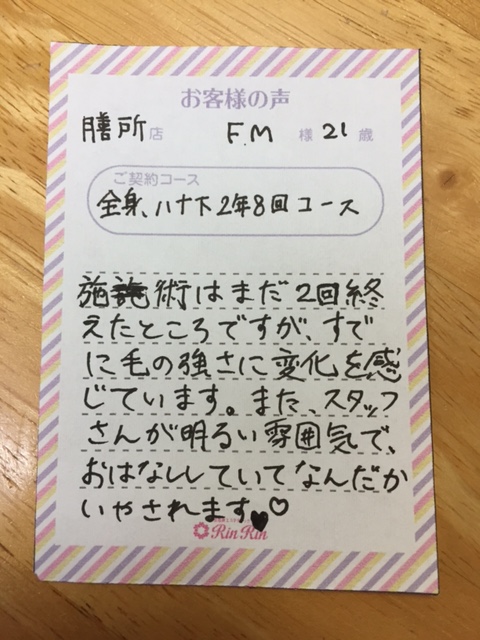 お客様の声
膳所店 F.M 様 21歳
ご契約コース
全身、ハナ下2年8回コース
施術はまだ2回終
えたところですが、すで
に毛の強さに変化を感
じています。また、スタッフ
さんが明るい雰囲気で、
おはなししていてなんだか
いやされます♥♡
RinRin